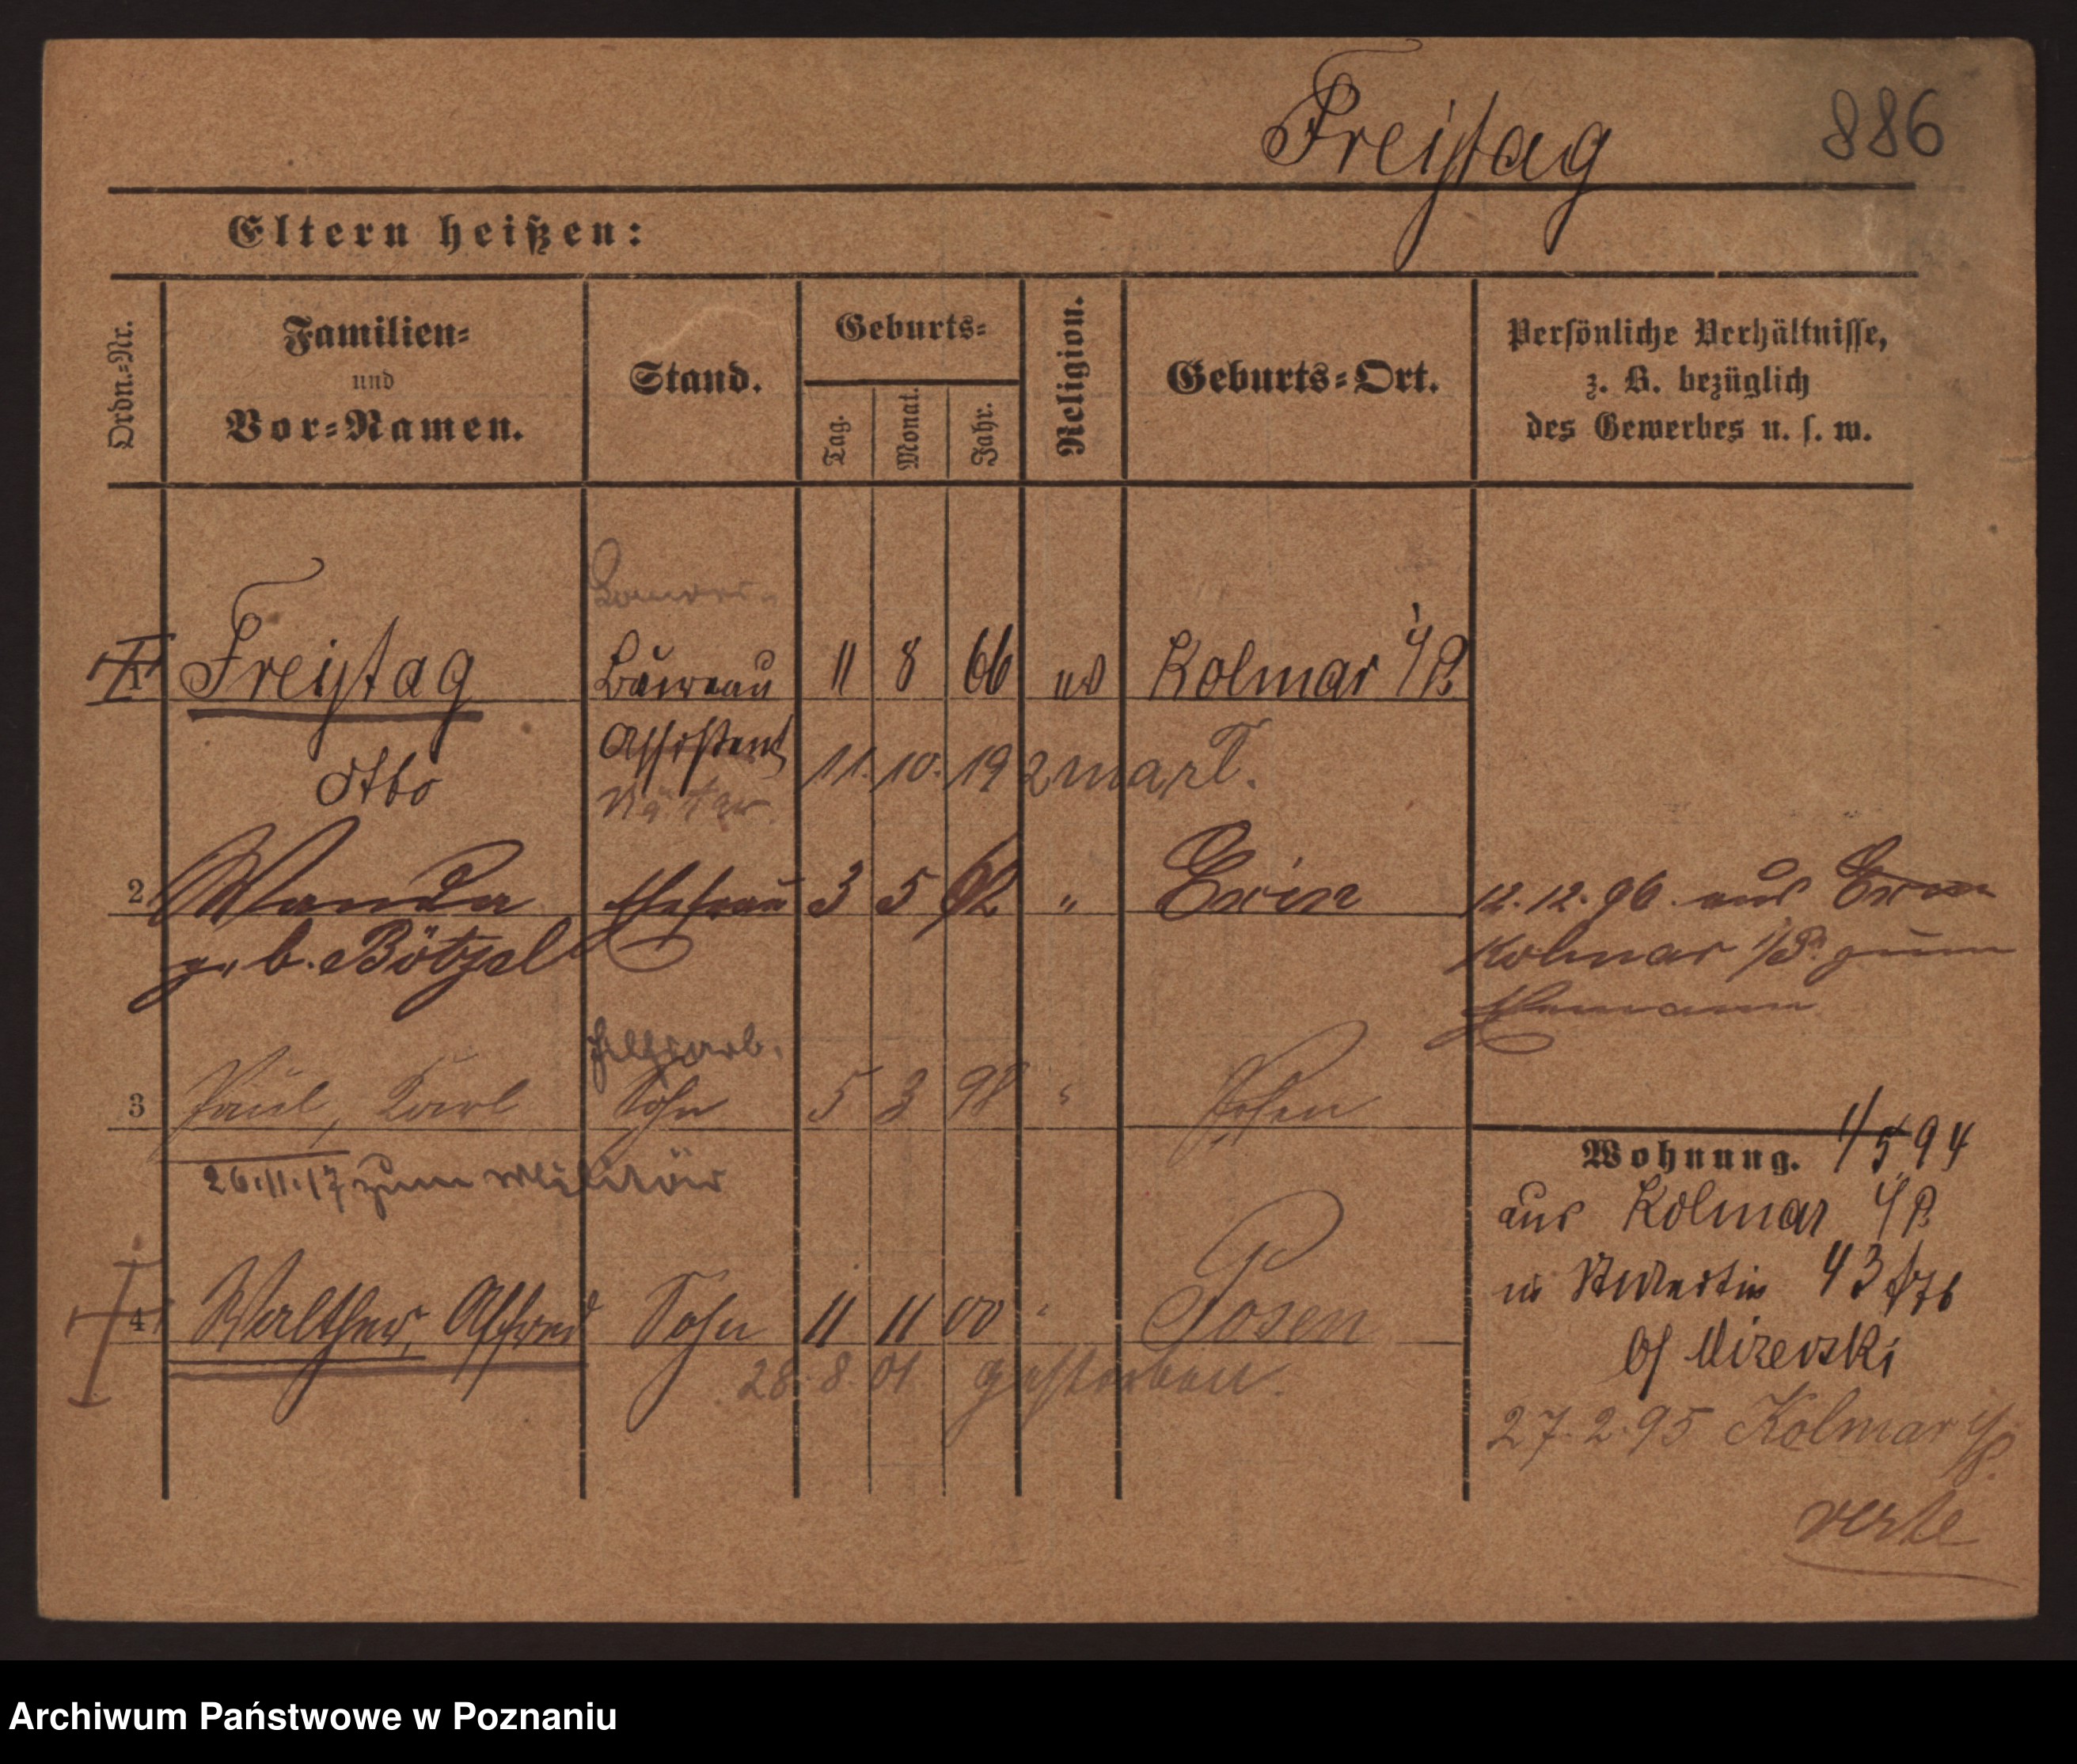 Freytag
886
Eltern heißen:
Ordn.-Nr.
Familien-
und
Vor-Namen.
Stand.
Geburts-
Tag.
Monat.
Jahr.
Religion.
Geburts-Ort.
Persönliche Verhältnisse,
z. B. bezüglich
des Gewerbes u. s. w.
1 Freytag Büreau 11 8 66 Kolmar i/P.
Assistent
Otto 11. 10. 19
2 Wanda Ehefrau 3 5 62 " Exin 12. 12. 96. aus Exin
geb. Bötzel Kolmar i/P. zum
Ehemann
3 Paul, Karl Sohn 5 3 98 " Posen
26.11.17 zum Militär
Wohnung. 1/5 94
aus Kolmar i/P.
4 Walther, Alfred Sohn 11 11 00 " Posen
28. 8. 01 gestorben.
27. 2. 95 Kolmar i/P.
verte
Archiwum Państwowe w Poznaniu